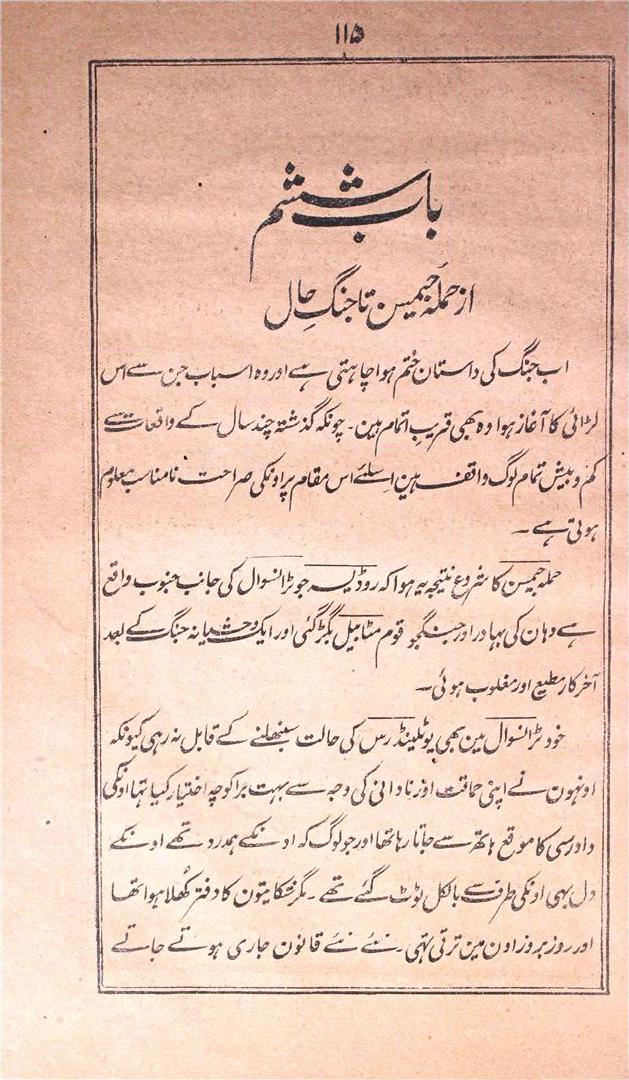 ۱۱۵
باب ششم
از حملۂ جیمیسن تا جنگِ حال
اب جنگ کی داستان ختم ہوا چاہتی ہے اور وہ اسباب جن سے اس
لڑائی کا آغاز ہوا وہ بھی قریب اتمام ہین۔ چونکہ گذشتہ چند سال کے واقعات سے
کم و بیش تمام لوگ واقف ہین اسلئے اس مقام پر اونکی صراحت نامناسب معلوم
ہوتی ہے۔
حملہ جیمسن کا شروع نتیجہ یہ ہوا کہ روڈیسہ جو ٹرانسوال کی جانب جنوب واقع
ہے وہان کی بہادر اور جنگجو قوم مٹابیل بگڑ گئی اور ایک وحشیانہ جنگ کے بعد
آخر کار مطیع اور مغلوب ہوئی۔
خود ٹرانسوال مین بھی یوٹلینڈرس کی حالت سنبھلنے کے قابل نہ رہی کیونکہ
اونہون نے اپنی حماقت اور نادانی کی وجہ سے بہت برا کوچہ اختیار کیا تہا اونکی
دادرسی کا موقع ہاتھ سے جاتا رہا تھا اور جو لوگ کہ اونکے ہمدرد تھے اونکے
دل بہی اونکی طرف سے بالکل ٹوٹ گئے تھے۔ مگر شکایتون کا دفتر کُھلا ہوا تھا
اور روز بروز اون مین ترقی تہی۔ نئے نئے قانون جاری ہوتے جاتے